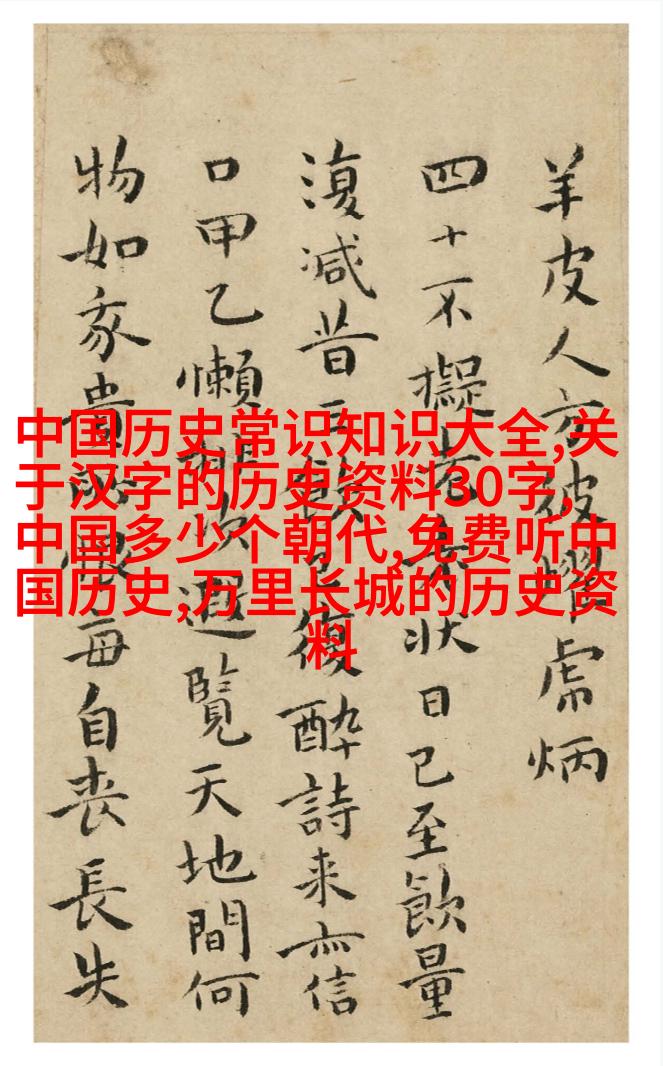 羊皮人亦破虎炳
四十不擬老衰状日已至飲量
復減昔三已復醉詩来亦信
口甲乙懶次遐覽天地間何
物如我貴每自丧長失
中国历史常识知识大全,关
于汉字的历史资料30字,
中国多少个朝代,免费听中
国历史,万里长城的历史资
料